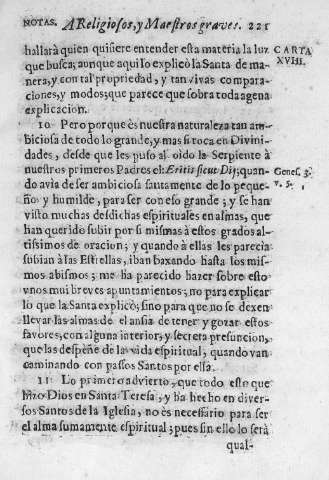 NOTAS. A Religiosos, y Maestros graves. 221
hallarà quien quisiere entender esta materia la luz
que busca; aunque aqui lo explicò la Santa de ma-
nera, y con tal propriedad, y tan vivas compara-
ciones, y modos; que parece que sobra toda agena
explicacion.
CARTA
XVIII.
10 Pero porque es nuestra naturaleza tan am-
biciosa de todo lo grande, y mas si toca en Divini-
dades, desde que les puso al oìdo la Serpiente à
nuestros primeros Padres el: Eritis sicut Dij; quan-
do avia de ser ambiciosa santamente de lo peque-
ño y humilde, para ser con eso grande; y se han
visto muchas desdichas espirituales en almas, que
han querido subir por sì mismas à estos grados al-
tisimos de oracion; y quando à ellas les parecia
subian à las Estrellas, iban baxando hasta los mis-
mos abismos; me ha parecido hazer sobre esto
unos mui breves apuntamientos; no para explicar
lo que la Santa explicò; sino para que no se dexen
llevar las almas de el ansia de tener y gozar estos
favores, con alguna interior, y secreta presuncion,
que las despeñe de la vida espiritual, quando van
caminando con passos Santos por ella.
Genes. 3.
v. 5.
11 Lo primero advierto, que todo esto que
hizo Dios en Santa Teresa, y ha hecho en diver-
sos Santos de la Iglesia, no es necessario para ser
el alma sumamente espiritual; pues sin ello lo serà
qual-